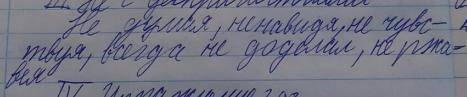 Не думая, ненавидя, не чувс-
твуя, всегда не доделал, не ржа-
вея
IV